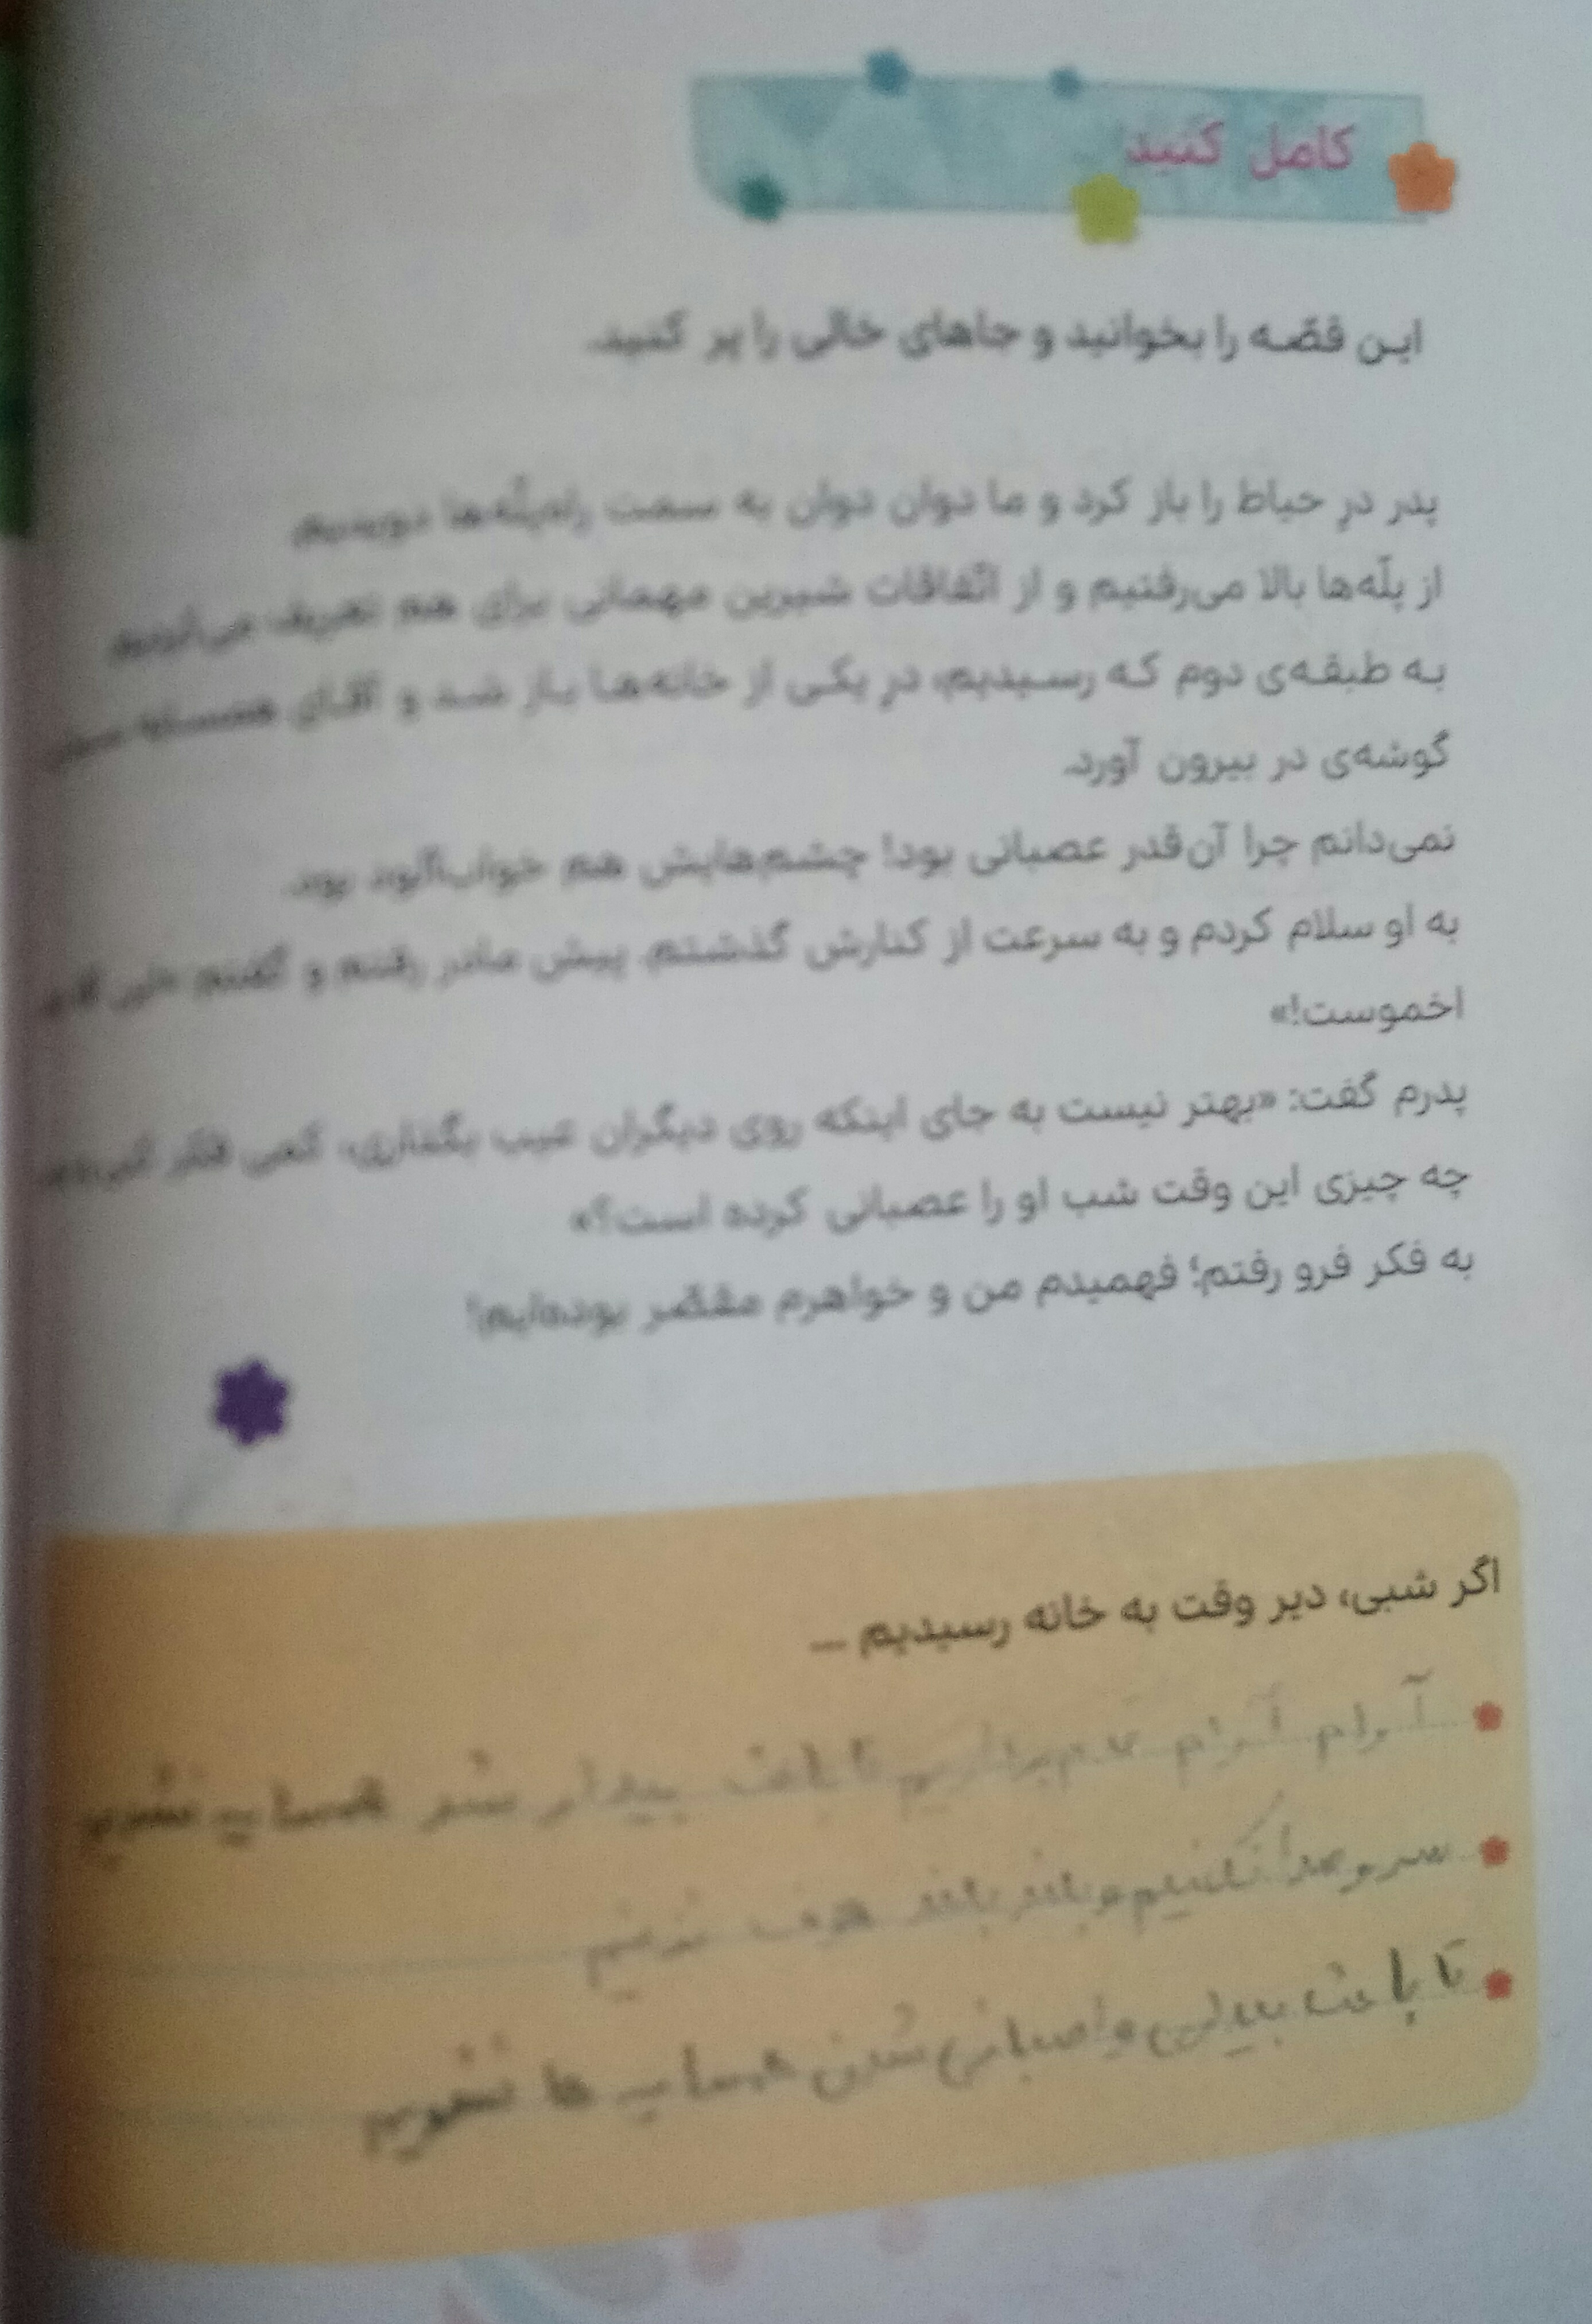 کامل کنید
این قصّه را بخوانید و جاهای خالی را پر کنید.
پدر درِ حیاط را باز کرد و ما دوان دوان به سمت راه‌پلّه‌ها دویدیم.
از پلّه‌ها بالا می‌رفتیم و از اتّفاقات شیرین مهمانی برای هم تعریف می‌کردیم.
به طبقه‌ی دوم که رسیدیم، درِ یکی از خانه‌ها باز شد و آقای همسایه سر از
گوشه‌ی در بیرون آورد.
نمی‌دانم چرا آن‌قدر عصبانی بود! چشم‌هایش هم خواب‌آلود بود.
به او سلام کردم و به سرعت از کنارش گذشتم. پیش مادر رفتم و گفتم
اخموست!»
پدرم گفت: «بهتر نیست به جای اینکه روی دیگران عیب بگذاری، کمی فکر کنی
چه چیزی این وقت شب او را عصبانی کرده است؟»
به فکر فرو رفتم؛ فهمیدم من و خواهرم مقصّر بوده‌ایم!
اگر شبی، دیر وقت به خانه رسیدیم ...
آرام آرام قدم برداریم تا باعث بیدار شدن همسایه نشویم
سر و صدا نکنیم و بلند بلند حرف نزنیم
تا باعث بیداری و اصبانی شدن همسایه ها نشویم